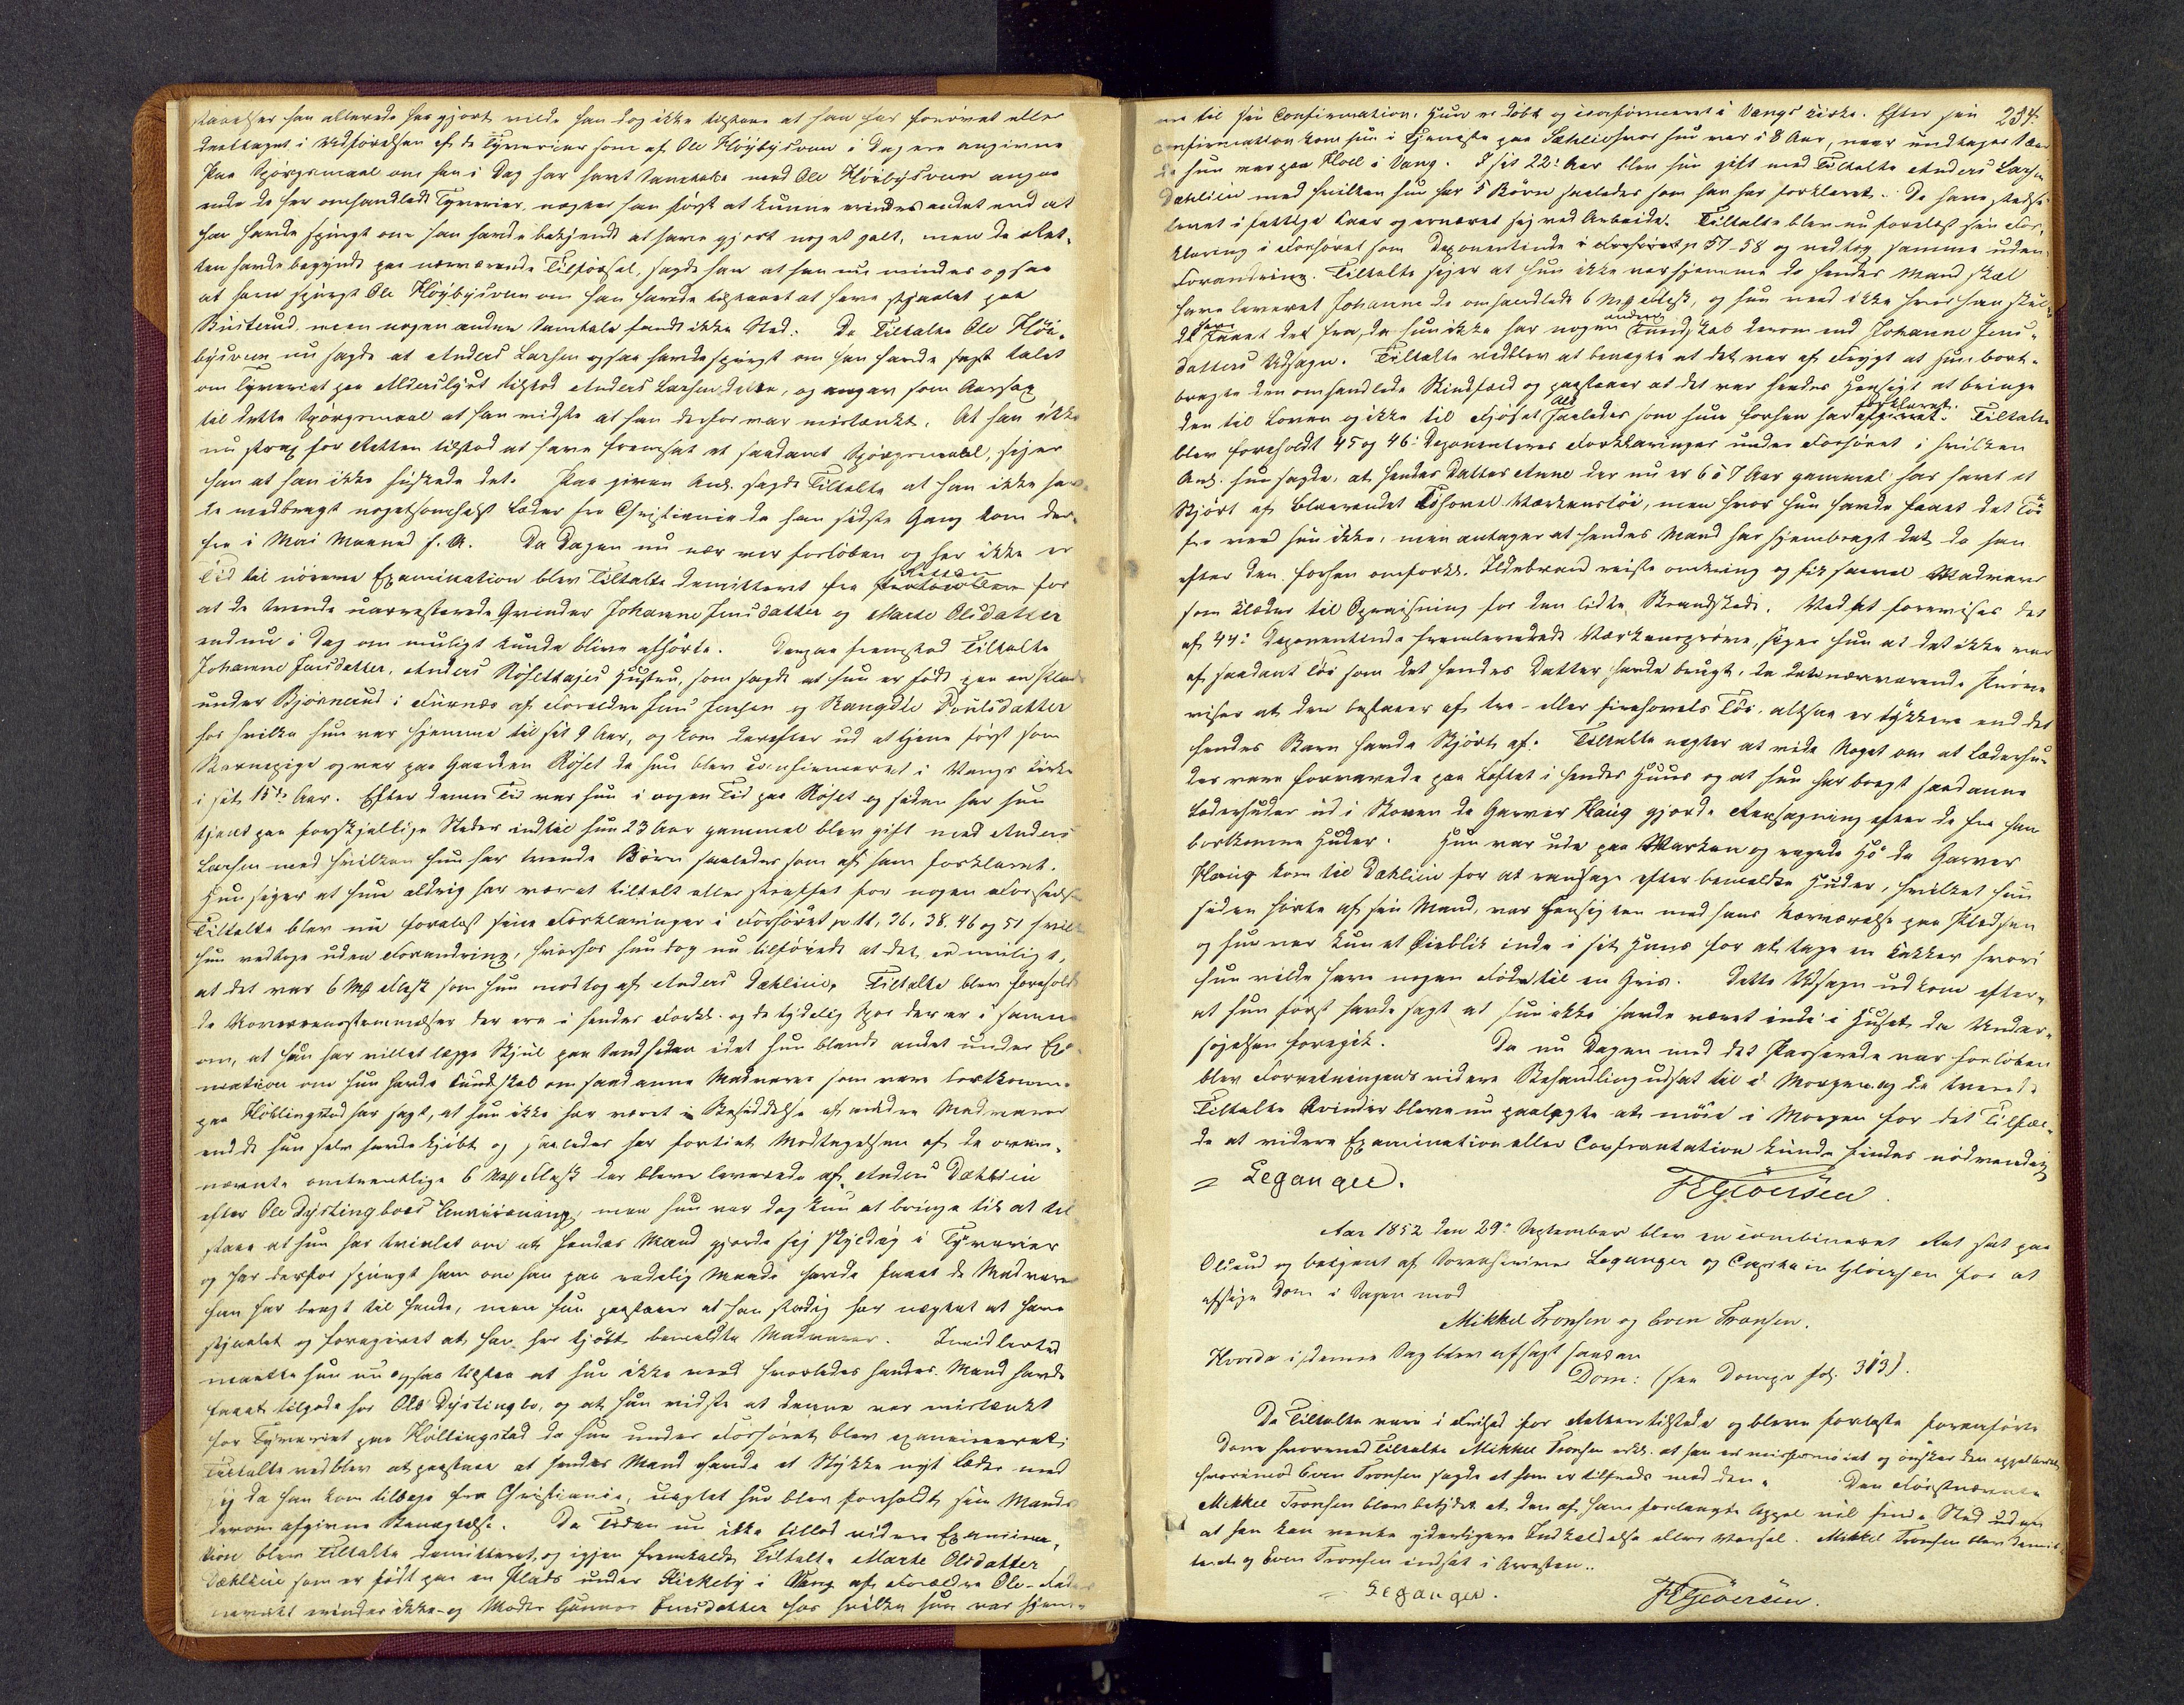 staaelser han allerede har gjort vilde han dog ikke tilstaae at han har forøvet eller
deeltaget i Udførelsen af de Tyverier som af Ole Höybysveen i Dag ere angivne
Paa Spörgsmaal om han i Dag har havt Samtale med Ole Höibysveen angaa
ende de her omhandlede Tyverier, negter han först at kunne erindre andet end at
han havde spurgt om han havde bekjendt at have gjort noget galt, men da Ret-
ten havde begyndt paa nærværende Tilförsel, sagde han at han nu mindes ogsaa
at have spurgt Ole Höybysveen om han havde tilstaaet at have stjaalet paa
Bustrud, men nogen anden Samtale fandt ikke Sted. Da Tiltalte Ole Höi-
bysveen nu sagde at Anders Larsen ogsaa havde spurgt om han havde sagt talet
om Tyveriet paa Alderslyst tilstod Anders Larsen dette, og angav som Aarsag
til dette Spörgsmaal at han vidste at han derfor var mistænkt. At han ikke
nu strax for Retten tilstod at have fremsat et saadant Spörgsmaal, siger
han at han ikke huskede det. Paa given Anl. sagde Tiltalte at han ikke hav-
de medbragt nogetsomhelst Læder fra Christiania da han sidste Gang kom der-
fra i Mai Maaned f. A. Da Dagen nu nær var forløben og her ikke er
Tid til nöiere Examination blev Tiltalte demitteret fra Retten for
at de tvende uarresterede Qvinder Johanne Jensdatter og Marte Olsdatter
endnu i Dag om muligt kunde blive afhörte. Derpaa fremstod Tiltalte
Johanne Jensdatter, Anders Röseteiets Hustru, som sagde at hun er födt paa en Plads
under Björnerud i Furnæs af Forældre Jens Jensen og Rangdie Poulsdatter
hos hvilke hun var hjemme til sit 9 Aar, og kom derefter ud at tjene först som
Barnepige og var paa Gaarden Röset da hun blev confirmeret i Vangs Kirke
i sit 15de Aar. Efter denne Tid var hun i nogen Tid paa Röset og siden har hun
tjent paa forskjellige Steder indtil hun 23 Aar gammel blev gift med Anders
Larsen med hvilken hun har tvende Börn saaledes som af ham forklaret.
Hun siger at hun aldrig har været tiltalt eller straffet for nogen Forseelse
Tiltalte blev nu forelæst sine Forklaringer i Forhöret p. 11, 36, 38, 46 og 51 hvilke
hun vedtog uden Forandring, hvorhos hun dog nu tilföiede at det er muligt,
at det var 6 Mk Flesk som hun modtog af Anders Dæhliie. Tiltalte blev foreholdt
de Uoverensstemmelser der ere i hendes Forkl. og de tydelig Spor der er i samme
om, at hun har villet lægge Skjul paa Sandheden idet hun blandt andet under Exa-
mination om hun havde Kundskab om saadanne Madvarer som vare bortkomne
paa Köblingstad har sagt, at hun ikke har været i Besiddelse af andre Madvarer
end de hun selv havde kjöbt og saaledes har fortiet Modtagelsen af de oven-
nævnte omtrentlige 6 Mk Flesk der bleve leverede af Anders Dæhliie
efter Ole Dystingboes Anviisning, men hun var dog kun at bringe til at til
staae at hun har tvivlet om at hendes Mand gjorde sig skyldig i Tyverier
og har derfor spurgt ham om han paa redelig Maade havde faaet de Madvarer
han har bragt til hende, men hun paastaaer at han stadig har negtet at have
stjaalet og foregivet at han har kjöbt bemeldte Madvarer. Imidlertid
maatte hun nu ogsaa tilstaa at hun ikke veed hvorledes hendes Mand havde
faaet tilgode hos Ole Dystingbo, og at hun vidste at denne var mistænkt
for Tyveriet paa Köllingstad da hun under Forhöret blev examineret.
Tiltalte vedblev at paastaae at hendes Mand havde et Stykke nyt Læder med
sig da han kom tilbage fra Christiania, uagtet hun blev foreholdt sin Mands
derom afgivne Benegtelse. Da Tiden nu ikke tillod videre Examina-
tion blev Tiltalte demitteret, og igjen fremkaldt Tiltalte Marte Olsdatter
Dæhliie som er födt paa en Plads under Kirkeby i Vang af Forældre Ole - Faders
navnet erindres ikke - og Moder Gunnor Jensdatter hos hvilke hun var hjem-
234.
me til sin Confirmation. Hun er döbt og confirmeret i Vangs Kirke. Efter sin
Confirmation kom hun i Tjeneste paa Sæhlie hvor hun var i 8 Aar, naar undtages
da hun var paa Hoel i Vang. I sit 22de Aar blev hun gift med Tiltalte Anders Larsen
Dæhliie med hvilken hun har 5 Börn saaledes som han har forklaret. De have stedse
levet i fattige Kaar og ernæret sig ved Arbeide. Tiltalte blev nu forelæst sin For-
klaring i Forhöret som Deponentinde p. 57-58 og vedtog samme uden
Forandring. Tiltalte siger at hun ikke var hjemme da hendes Mand skal
have leveret Johanne de omhandlede 6 Mk Flesk, og hun veed ikke hvor han skul-
de have faaet det fra, da hun ikke har nogen anden Kundskab derom end Johanne Jens-
datters Udsagn. Tiltalte vedblev at benegte at det var af Frygt at hun bort-
bragte den omhandlede Skindfæld og paastaaer at det var hendes Hensigt at bringe
den til Loven og ikke til Fjöset Alt saaledes som hun forhen har forklaret. Tiltalte
blev foreholdt 45 og 46de Deponenters Forklaringer under Forhöret i hvilken
Anl. hun sagde, at hendes Datter Anne der nu er 6 à 7 Aar gammel har havt et
Skjört af blaarendet Tohovel Værkenstöi, men hvor hun havde faaet det Töi
fra veed hun ikke, men antager at hendes Mand har hjembragt det da han
efter den forhen omforkl. Ildebrand reiste omkring og fik saavel Madvarer
som Klæder til Opreisning for den lidte Brandskade. Ved at forevises det
af 44de Deponentinde fremleverede Værkensprøve, siger hun at det ikke var
af saadant Töi som det hendes Datter havde brugt, da det nærværende Pröve
viser at den bestaaer af tre- eller firehovels Töi, altsaa er tykkere end det
hendes Barn havde Skjört af. Tiltalte negter at vide Noget om at Læderhu-
der vare forvarede paa Loftet i hendes Huus og at hun har bragt saadanne
Læderhuder ud i Skoven da Garver Haug gjorde Ransagning efter de fra ham
bortkomne Huder. Hun var ude paa Marken og ragede Hö da Garver
Haug kom til Dæhliie for at ransage efter bemeldte Huder, hvilket hun
siden hörte af sin Mand, var Hensigten med hans Nærværelse paa Pladsen
og hun var kun et Öieblik inde i sit Huus for at tage en Kakker hvori
hun vilde have nogen Föde til en Gris. Dette Udsagn udkom efter-
at hun först havde sagt at hun ikke havde været inde i Huset da Under-
sögelsen foregik. Da nu Dagen med det Passerede var forløben
blev Forretningens videre Behandling udsat til i Morgen, og de tvende
Tiltalte Qvinder bleve nu paalagte at möde i Morgen for det Tilfæl-
de at videre Examination eller Confrontation kunde findes nödvendig
= Leganger. Gløersen.
Aar 1852 den 29de September blev en combineret Ret sat paa
Olsrud og betjent af Sorenskriver Leganger og Capitain Gløersen for at
afsige Dom i Sagen mod
Mikkel Tronsen og Even Tronsen.
Hvorda i denne Sag blev afsagt saadan
Dom: (see Dompr. fol. 313).
De Tiltalte vare i Frihed for Retten tilstede og bleve forelæste foranførte
Dom hvorved Tiltalte Mikkel Tronsen erkl. at han er misfornöiet og önsker den appelleret
hvorimod Even Tronsen sagde at han er tilfreds med den. Den Førstnævnte
Mikkel Tronsen blev betydet at den af ham forlangte Appel vil finde Sted uden
at han kan vente yderligere Indkaldelse eller Varsel. Mikkel Tronsen blev demit-
teret og Even Tronsen indsat i Arresten.
= Leganger. Gløersen.